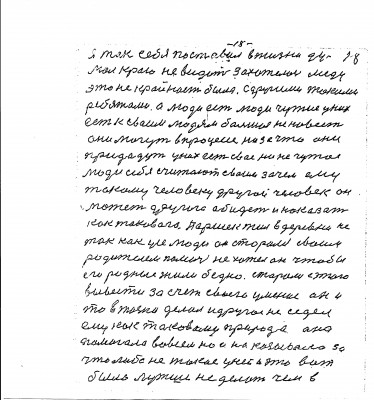 -18-
я так себя поставил в жизни ду- 18
мал краю не видит захотели меду
это не крайность была. с другими такими
ребятами. а люди ест люди чужие у них
ест к своим людям больше ненавист
они могут в процессе не за что они
придадут у них ест свое но не чужое
люди себя считают своим зачем ему
такому человеку другой человек он
может другого обидет и показат
как таковага. Паршел жил в деревни не
так как уже люди он старался своим
родителям помоч не хотел он чтобы
его родные жили бедно. старался этого
вывести за счет своего умение он и
то в толко делал и другой не сидел
ему как таковому природа она
помагала во всем но и наказывала за
что либо не такое у нее и это вот
было лутше не делат чем в